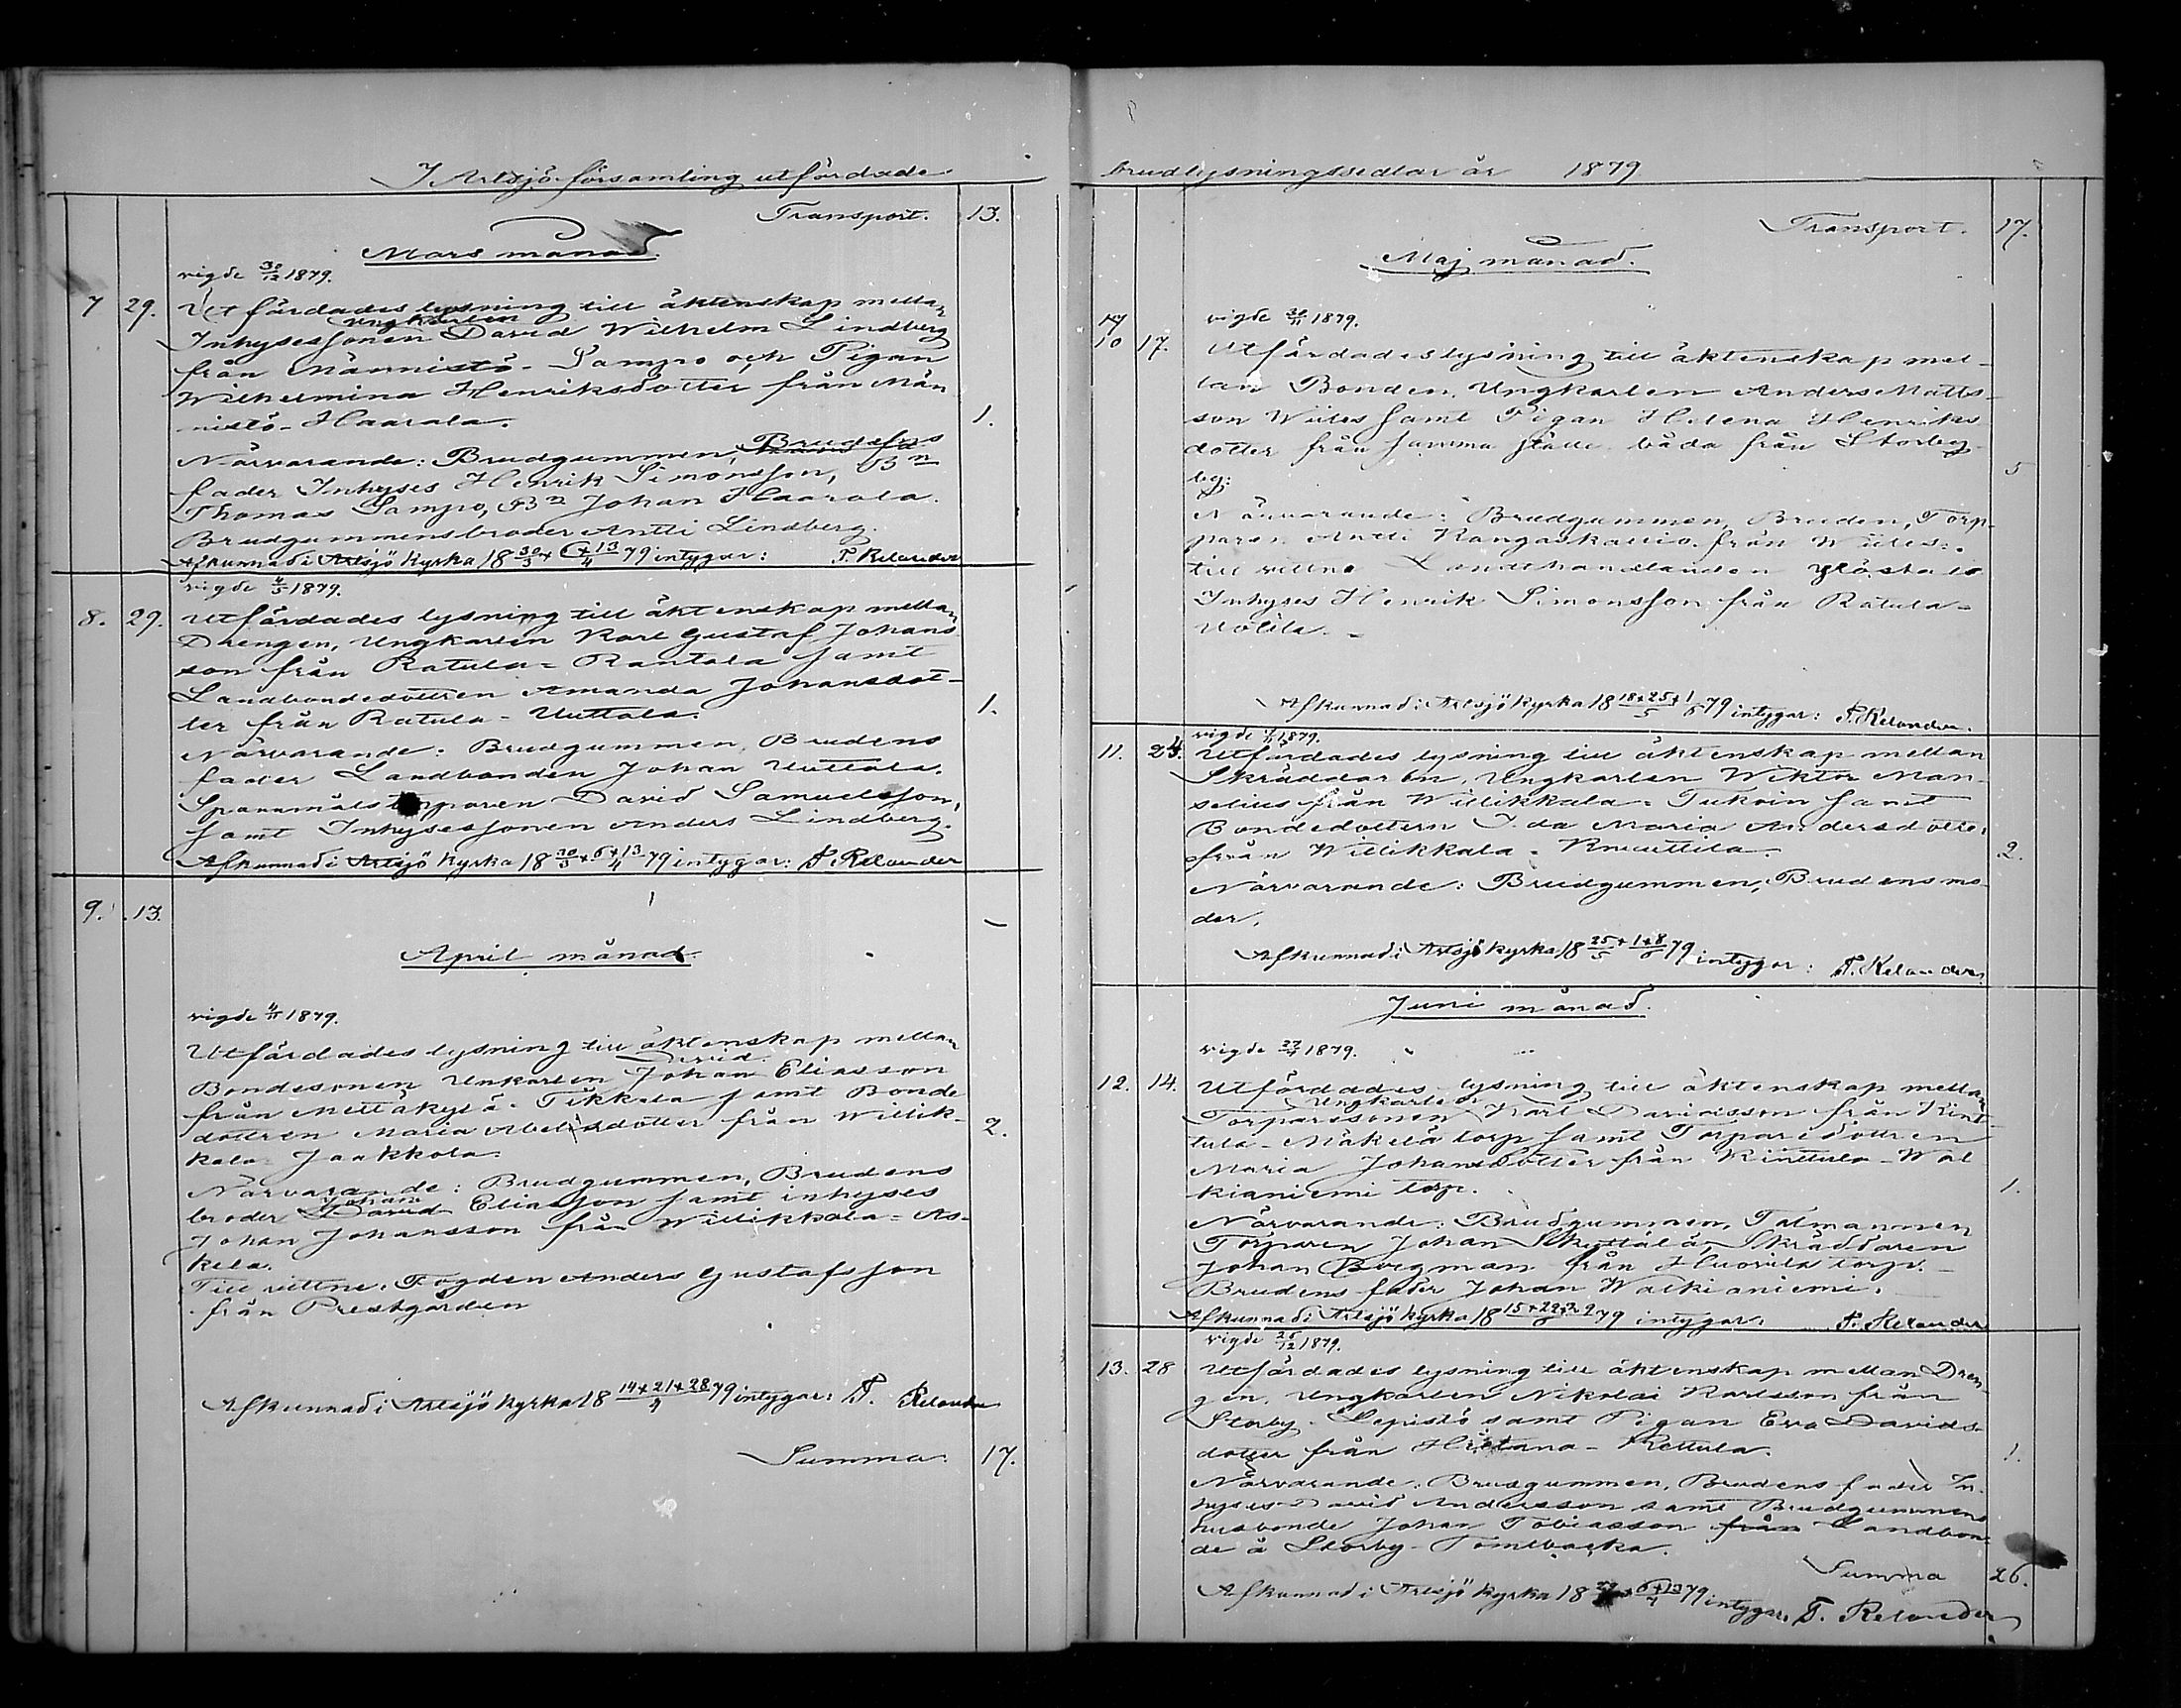 I Artsjö församling utfärdade
Transport. 13.
Mars månad.
vigde 30/12 1879.
7 29. Utfärdades lysning till äktenskap mellan
Ungkarlen
Inhysessonen David Wilhelm Lindberg
från Männistö-Sampo och Pigan
Wilhelmina Henriksdotter från Män
nistö-Haarala. 1.
Närvarande: Brudgummen, Brudens
fader Inhyses Henrik Simonsson, Bn
Thomas Sampo, Bn Johan Haarala.
Brudgummensbroder Antti Lindberg.
Afkunnad i Artsjö kyrka 18 30/3 + 6+13/4 79 intygar: T. Relander
vigde 4/5 1879.
8. 29. Utfärdades lysning till äktenskap mellan
Drengen, Ungkarlen Karl Gustaf Johans
son från Ratula=Rantala samt
Landbondedottren Amanda Johansdot-
ter från Ratula-Uuttala. 1.
Närvarande: Brudgummen, Brudens
fader Landbonden Johan Uuttala.
Spannmålstorparen David Samuelsson,
samt Inhysessonen Anders Lindberg.
Afkunnad i Artsjö kyrka 18 30/3 + 6+13/4 79 intygar: T. Relander
9. 13. –
April månad
vigde 4/11 1879.
Utfärdades lysning till äktenskap mellan
David
Bondesonen Unkarlen Johan Eliasson
från Mettäkylä-Tikkala samt Bonde
dottren Maria Abelsdotter från Willik-
kala-Jaakkola. 2.
Närvarande: Brudgummen, Brudens
Johan
broder David Eliasson samt inhyses
Johan Johansson från Willikkala=As-
kela.
Till vittne, Fogden Anders Gustafsson
från Prestgården
Afkunnad i Artsjö kyrka 18 14+21+28/4 79 intygar: T. Relander
Summa. 17.
brudlysningssedlar år 1879
Transport. 17.
Maj månad.
vigde 1879.
10 17. Utfärdades lysning till äktenskap mel-
lan Bonden, Ungkarlen Anders Matts-
son Wiites samt Pigan Helena Henriks
dotter från samma ställe båda från Storby
by: 5
Närvarande: Brudgummen, Bruden, Torp-
paren Antti Kangaskallio från Wiites.
till vittne Landthandlanden
Inhyses Henrik Simonsson från Ratula=
Uotila.
Afkunnad i Artsjö kyrka 18 18+25/5 + 1/6 79 intygar: T. Relander.
vigde 1879.
11. 24. Utfärdades lysning till äktenskap mellan
Skräddaren, Ungkarlen Wiktor Man-
selius från Willikkala-Tukoin samt
Bondedottern Ida Maria Andersdotter
från Willikkala-Knuuttila. 2.
Närvarande: Brudgummen, Brudens mo-
der.
Afkunnad i Artsjö kyrka 18 25/5 + 1+8/6 79 intygar: T. Relander
Juni månad.
vigde 27/7 1879.
12. 14. Utfärdades lysning till äktenskap mellan
Ungkarlen
Torparesonen Karl Davidsson från Kint-
tula-Mäkelä torp samt Torparedottren
Maria Johansdotter från Kinttula-Wal
kianiemi torp. 1.
Närvarande: Brudgummen, Talmannen
Torparen Johan Skyttälä, Skräddaren
Johan Bergman från Huovila torp.
Brudens fader Johan Walkianiemi.
Afkunnad i Artsjö kyrka 18 15+22+29/6 79 intygar. T. Relander
vigde 26/12 1879.
13. 28 Utfärdades lysning till äktenskap mellan Dren-
gen, Ungkarlen Nikolai Karlsson från
Storby-Lepistö samt Pigan Eva Davids-
dotter från Hietana-Kettula. 1.
Närvarande: Brudgummen, Brudens fader In-
hyses David Andersson samt Brudgummens
husbonde Johan Tobiasson från Landbon-
de å Storby-Tomtbacka.
Summa 26.
Afkunnad i Artsjö kyrka 18 29/6 + 6+13/7 79 intygar, T. Relander